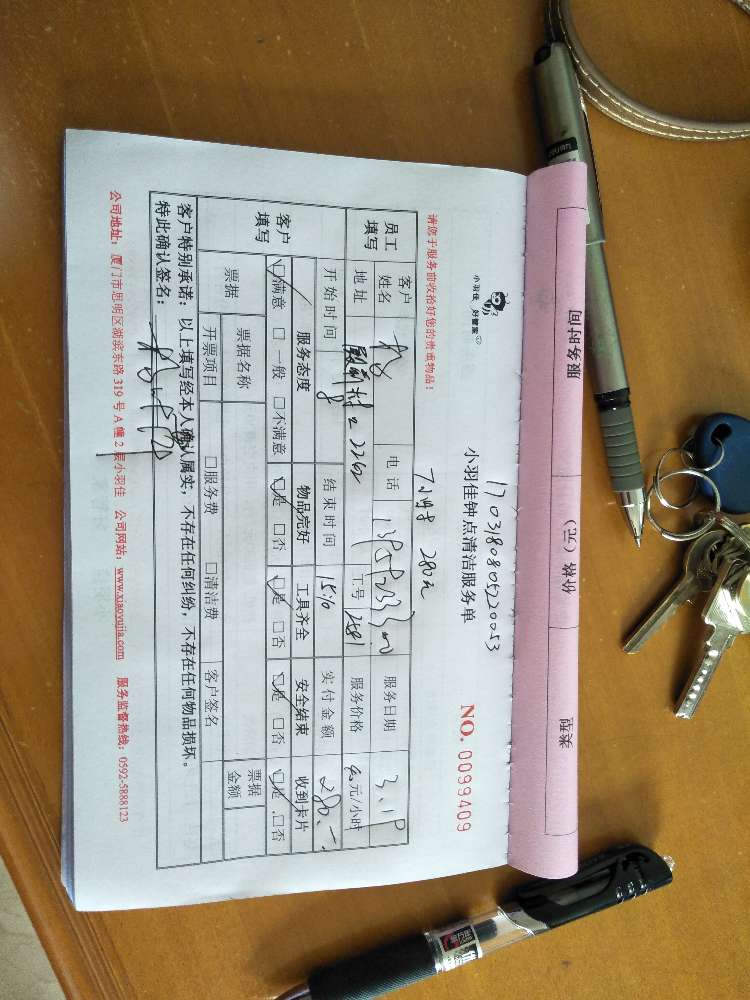 服务时间 价格（元） 类型
小羽佳 好管家
1703180805220053
小羽佳钟点清洁服务单
NO. 0099409
请您于服务前收拾好您的贵重物品！
7小时 280元
员工填写 客户姓名 电话 服务日期
地址 2262 工号 2581 服务价格 40元/小时
开始时间 8 结束时间 15:10 实付金额 280.
客户填写 服务态度 物品完好 工具齐全 安全结束 收到卡片
☑满意 □一般 □不满意 ☑是 □否 ☑是 □否 ☑是 □否 ☑是 □否
票据 票据名称 票据金额
开票项目 □服务费 □清洁费 客户签名
客户特别承诺：以上填写经本人确认属实，不存在任何纠纷，不存在任何物品损坏。
特此确认签名：
公司地址：厦门市思明区湖滨东路 319 号 A 幢 2 层小羽佳 公司网站：www.xiaoyujia.com 服务监督热线：0592-5888123